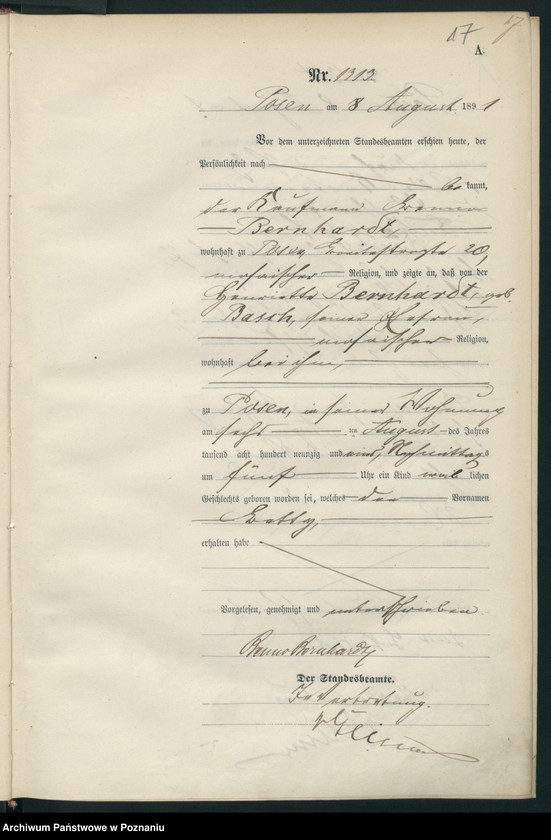 17
17
A.
Nr. 1313.
Posen am 8 August 1891
Vor dem unterzeichneten Standesbeamten erschien heute, der
Persönlichkeit nach
be kannt,
der Kaufmann Benno
Bernhardt,
wohnhaft zu Posen, Breitestraße 20,
mosaischer Religion, und zeigte an, daß von der
Henriette Bernhardt, geb.
Basch, seiner Ehefrau,
mosaischer Religion,
wohnhaft bei ihm,
zu Posen, in seiner Wohnung
am sechs ten August des Jahres
tausend acht hundert neunzig und eins, Nachmittags
um fünf Uhr ein Kind weib lichen
Geschlechts geboren worden sei, welches den Vornamen
Betty,
erhalten habe
Vorgelesen, genehmigt und unterschrieben
Benno Bernhardt
Der Standesbeamte.
In Vertretung.
Archiwum Państwowe w Poznaniu